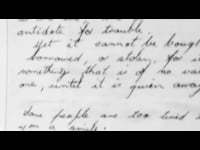 antidote for trouble.
Yet it cannot be bough
borrowed, or stolen, for i
something that is of no va
one, until it is given away
Some people are too tired
you a smile;